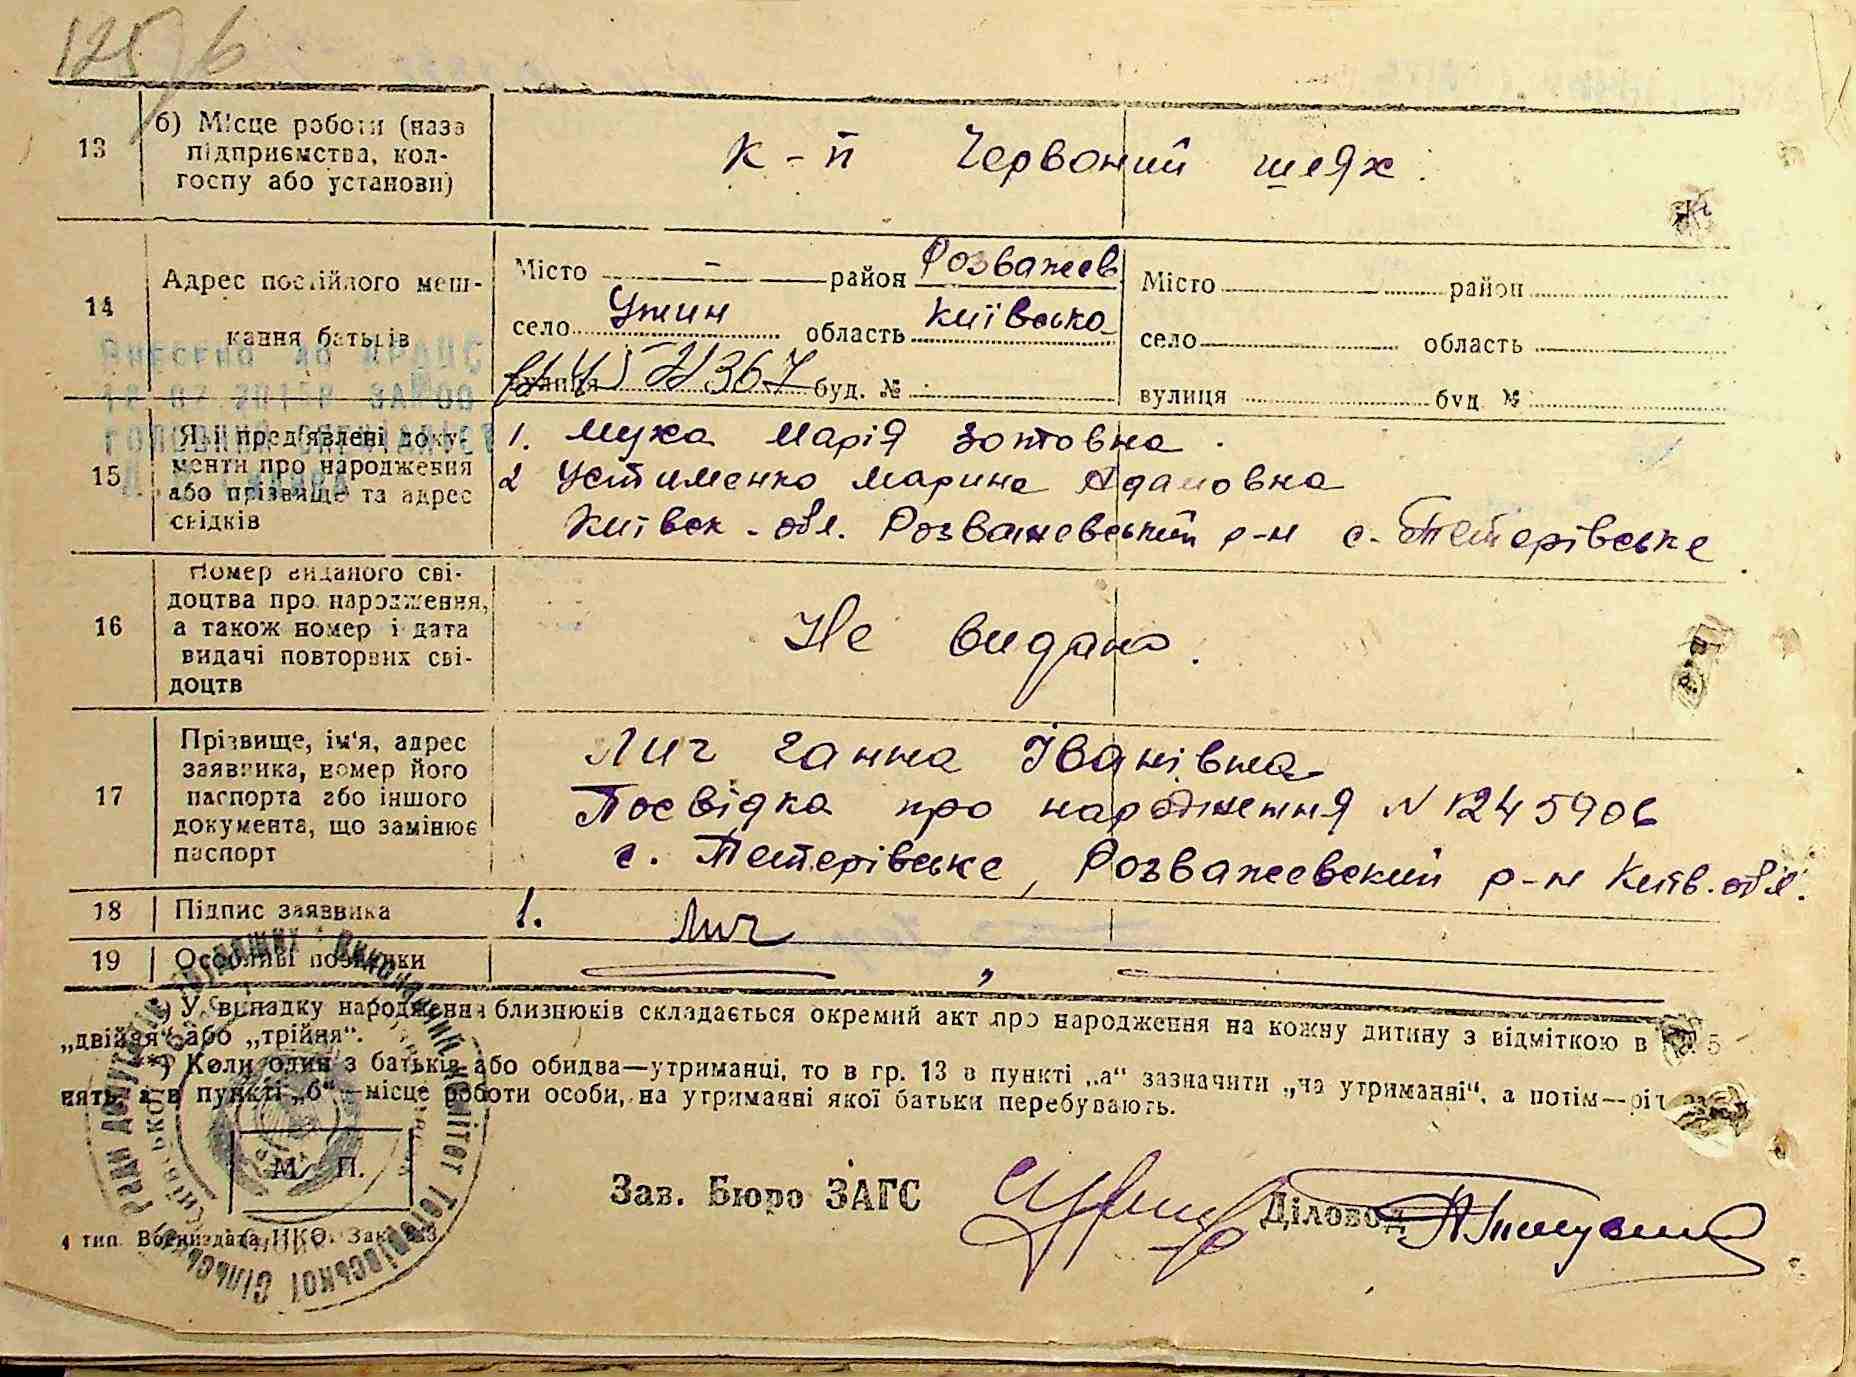 125 б
13 б) Місце роботи (назва підприємства, кол-госпу або установи) к-п Червоний шлях.
14 Адрес постійного меш-кання батьків
Місто - район Розважев
село Ужин область київсько
вулиця буд. №
Місто район
село область
вулиця буд №
Внесено до ДРАЦС
15 Які пред'явлені доку-менти про народження або прізвище та адрес свідків
1. Муха Марія Зотовна.
2 Устименко Марина Адамовна
Київск-обл. Розважевський р-н с. Тетерівське
16 Номер виданого сві-доцтва про народження, а також номер і дата видачі повторних сві-доцтв
Не видано.
17 Прізвище, ім'я, адрес заявника, номер його паспорта або іншого документа, що замінює паспорт
Лич Ганна Іванівна
Посвідка про народження N 1245906
с. Тетерівське, Розважевский р-н Київ. обл.
18 Підпис заявника 1. Лич
19 Особливі позначки
*) У випадку народження близнюків складається окремий акт про народження на кожну дитину з відміткою в гр. 5
„двійня“ або „трійня“.
**) Коли один з батьків або обидва—утриманці, то в гр. 13 в пункті „а“ зазначити „на утриманні“, а потім—рід
нять, а в пункті „б“—місце роботи особи, на утриманні якої батьки перебувають.
М. П.
Зав. Бюро ЗАГС Діловод
4 тип. Воениздата НКО. Зак.